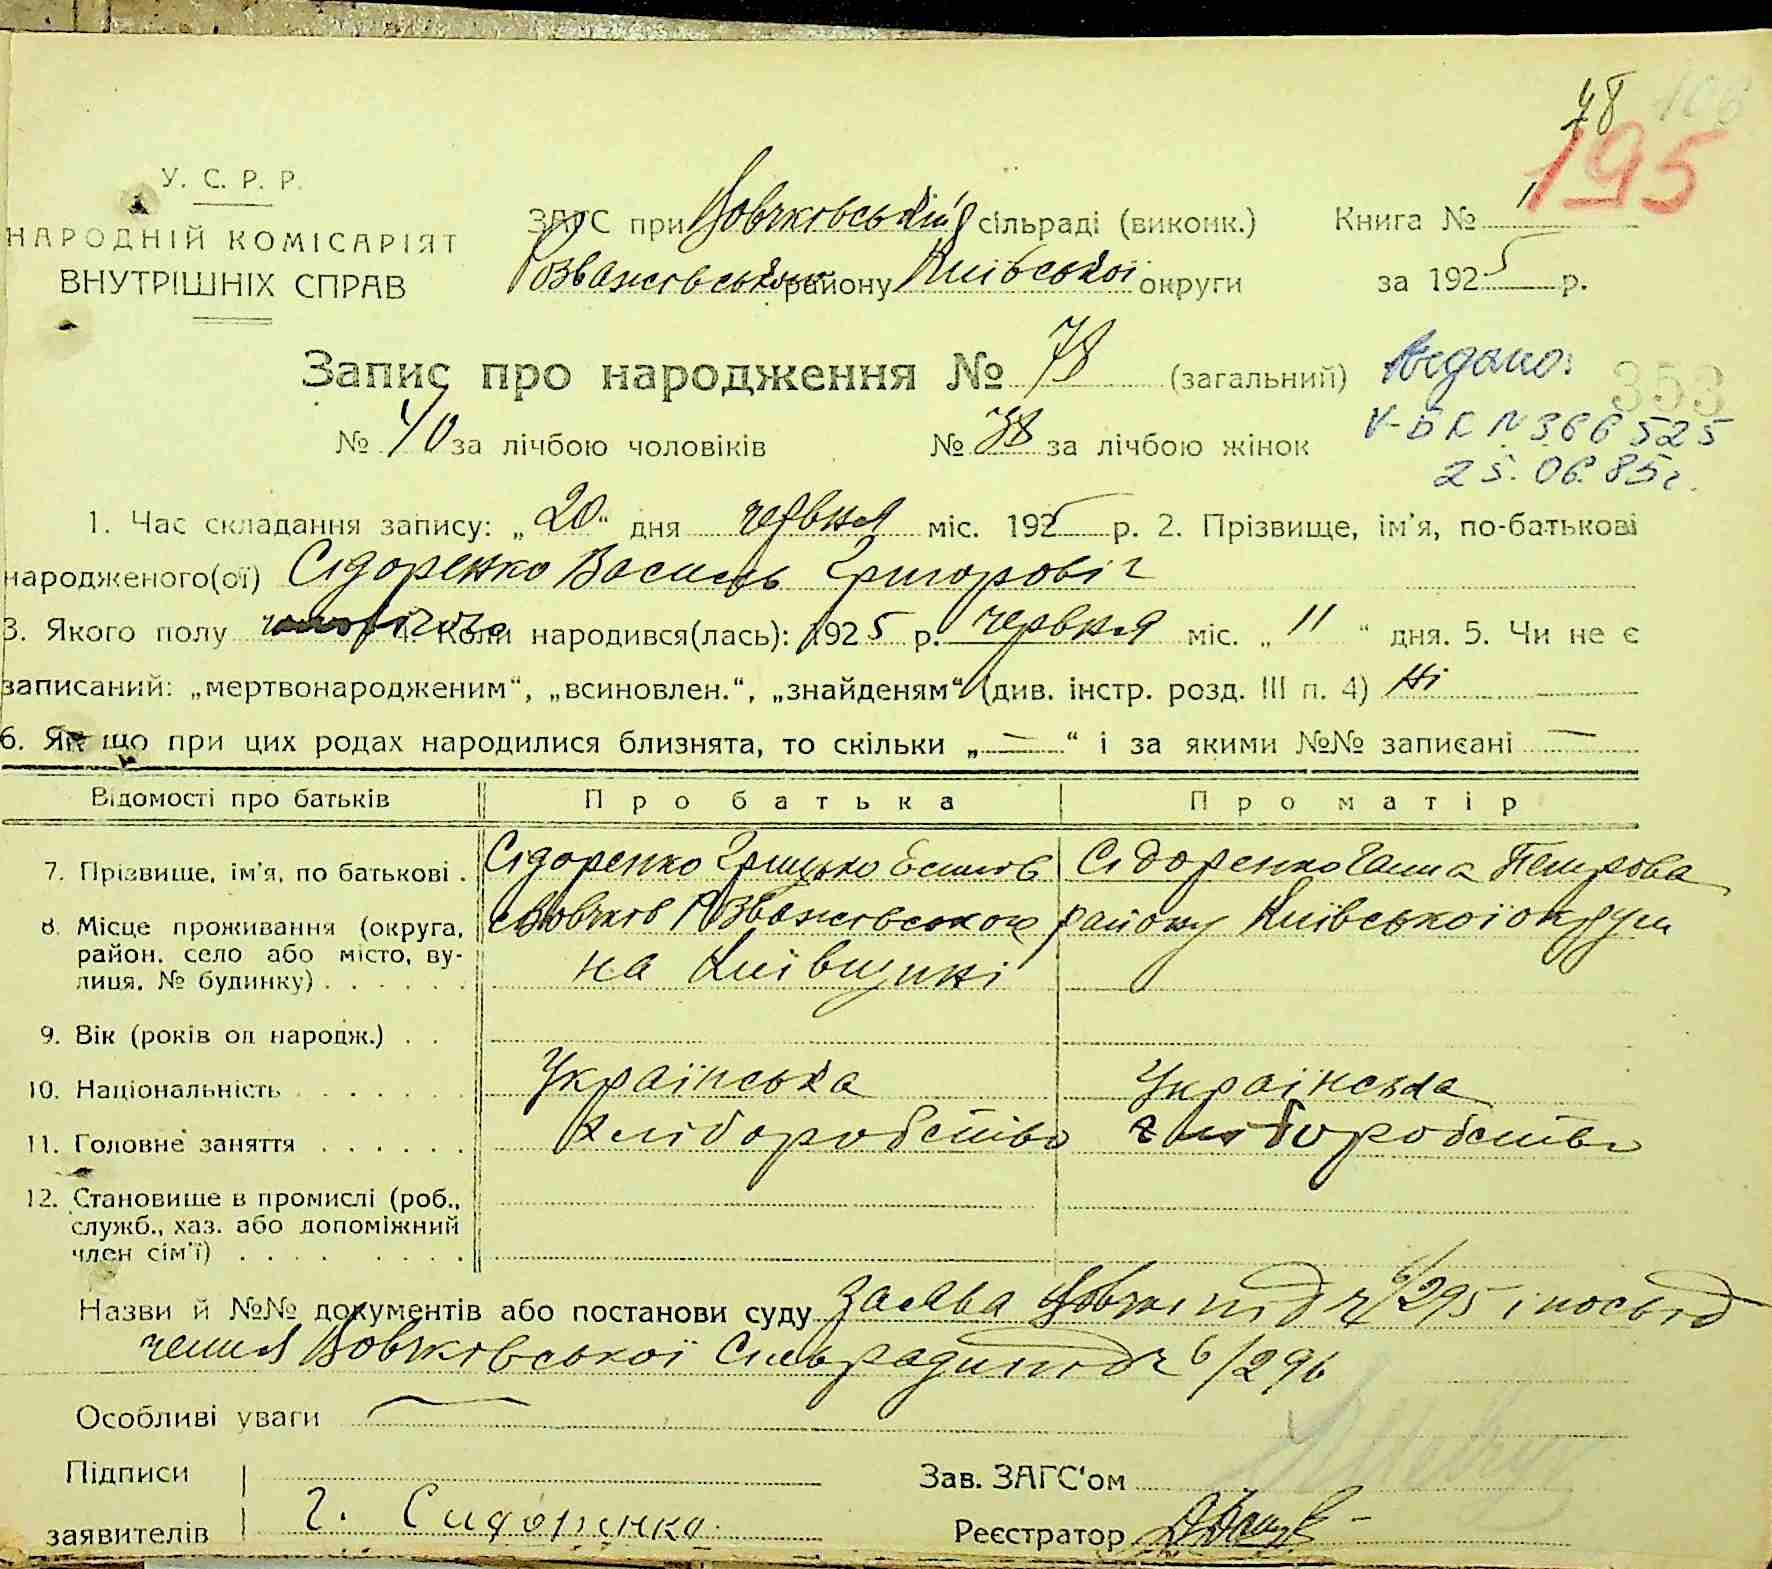 78 106
195
У. С. Р. Р.
НАРОДНІЙ КОМІСАРІЯТ
ВНУТРІШНІХ СПРАВ
ЗАГС при Вовчковській сільраді (виконк.) Книга № 1
Розважевського району Київської округи за 1925 р.
Запис про народження № 78 (загальний)
Видано:
353
№ 40 за лічбою чоловіків № 38 за лічбою жінок
V-БК N 366525
25.06.85г.
1. Час складання запису: „20“ дня червня міс. 1925 р. 2. Прізвище, ім'я, по-батькові
народженого(ої) Сідоренко Василь Григоровіч
3. Якого полу 4. Коли народився(лась): 1925 р. червня міс. „11“ дня. 5. Чи не є
записаний: „мертвонародженим“, „всиновлен.“, „знайденям“ (див. інстр. розд. III п. 4) Ні
6. Як що при цих родах народилися близнята, то скільки „—“ і за якими №№ записані —
Відомості про батьків Про батька Про матір
7. Прізвище, ім'я, по батькові . Сідоренко Грицько Сідоренко Ганна Петрова
8. Місце проживання (округа, район, село або місто, вулиця, № будинку) . . . . . . с Вовчків Розважевського району Київської округи
на Київщині
9. Вік (років од народж.) . .
10. Національність . . . . . . . Українська Українська
11. Головне заняття . . . . . . Хліборобство хліборобство
12. Становище в промислі (роб.,
служб., хаз. або допоміжний
член сім'ї) . . . . . . . .
Назви й №№ документів або постанови суду Заява під ч 6/295 і посьвід
чення Вовчківської Сільради під ч 6/296
Особливі уваги —
Підписи
Зав. ЗАГС'ом
заявителів Г. Сидоренко
Реєстратор